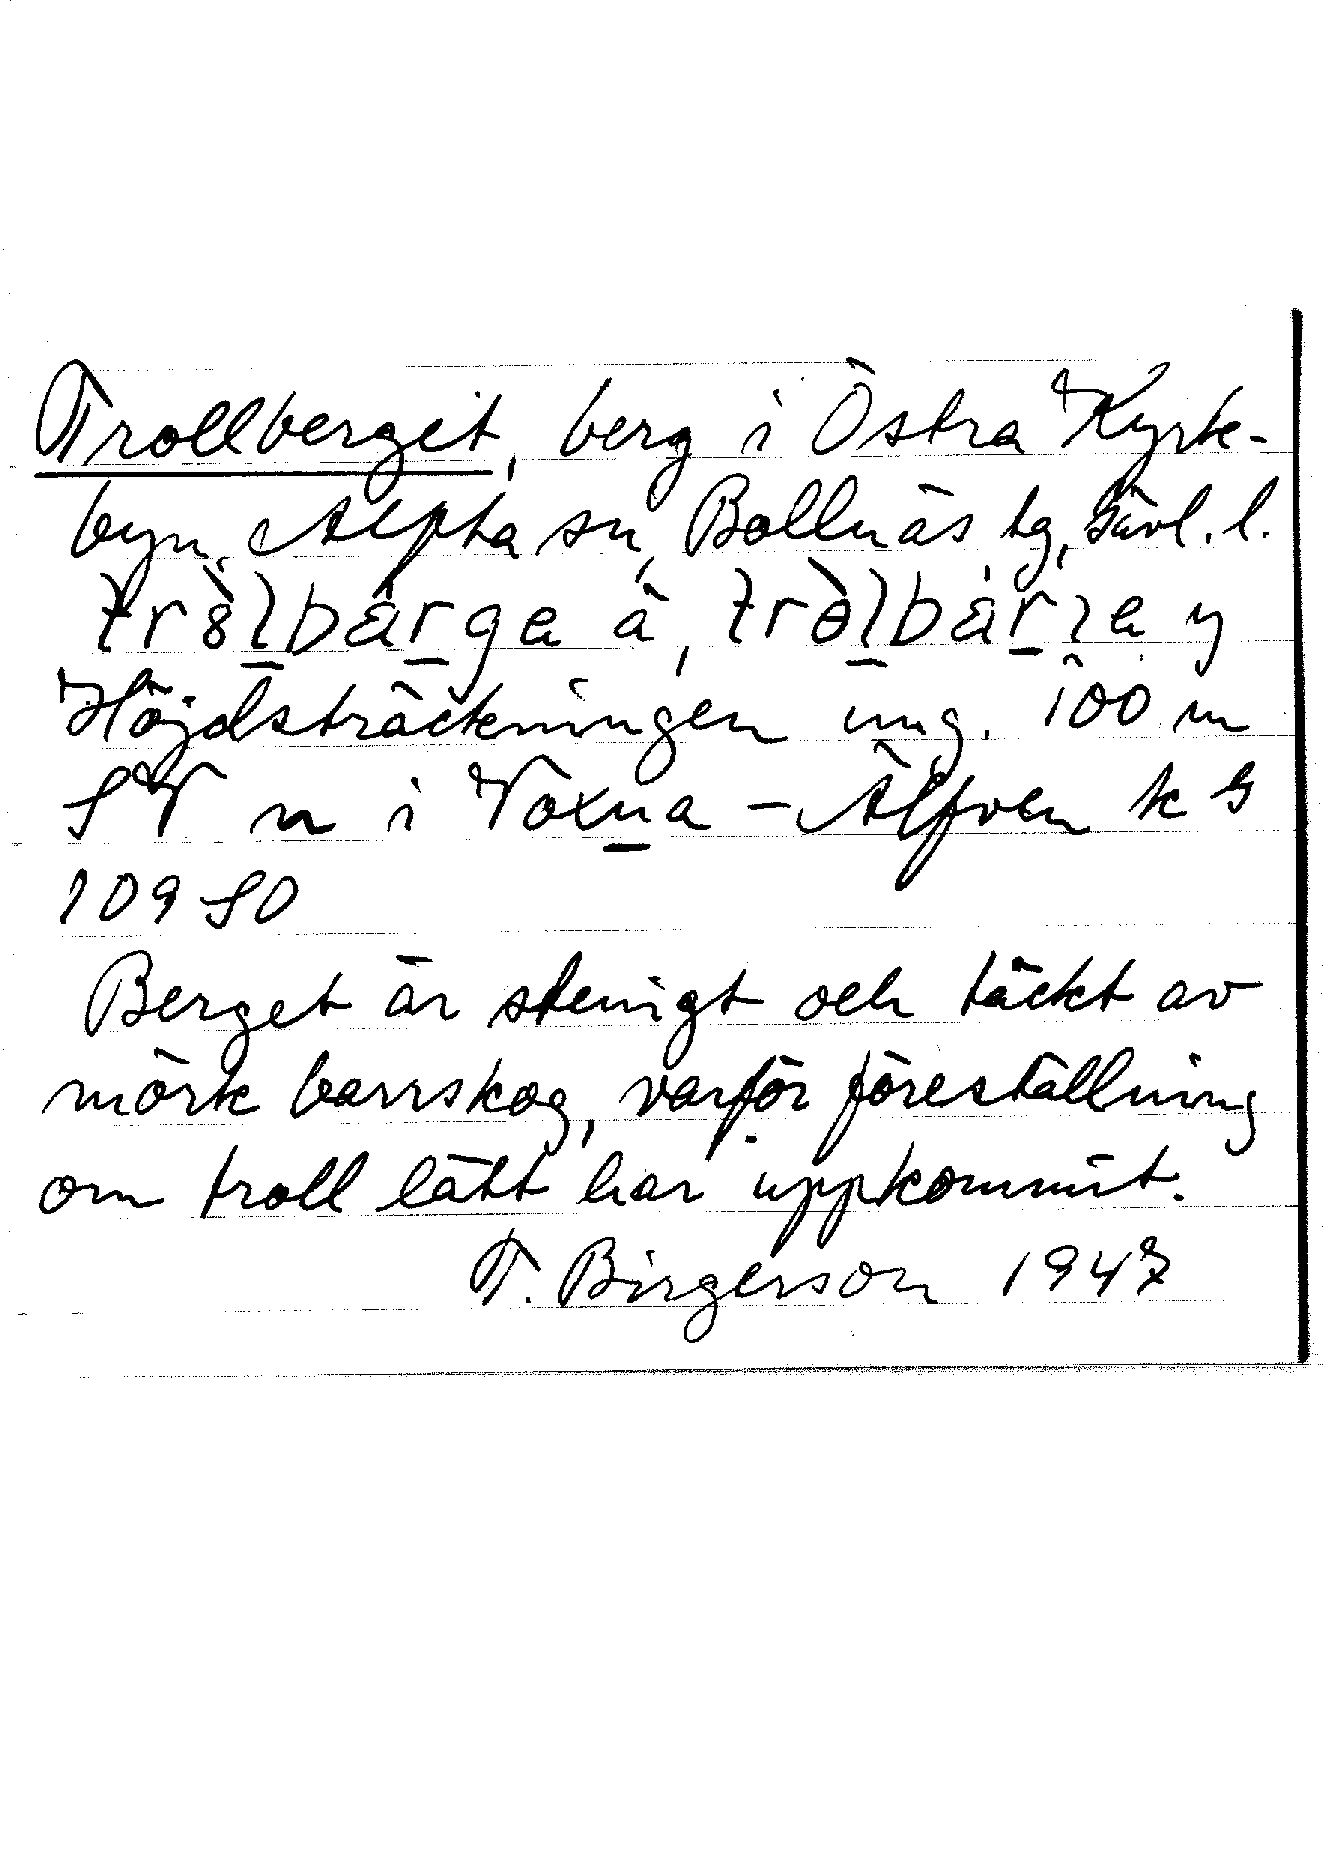 Trollberget, berg i Östra Kyrk-
byn, Alfta sn, Bollnäs tg, Gävl. l.
tròlbárga ä, tròlbárja y
Höjdsträckningen ung. 100 m
SV n i Voxna-Älfven k G
109 SO
Berget är stenigt och täckt av
mörk barrskog, varför föreställning
om troll lätt har uppkommit.
T. Birgerson 1947